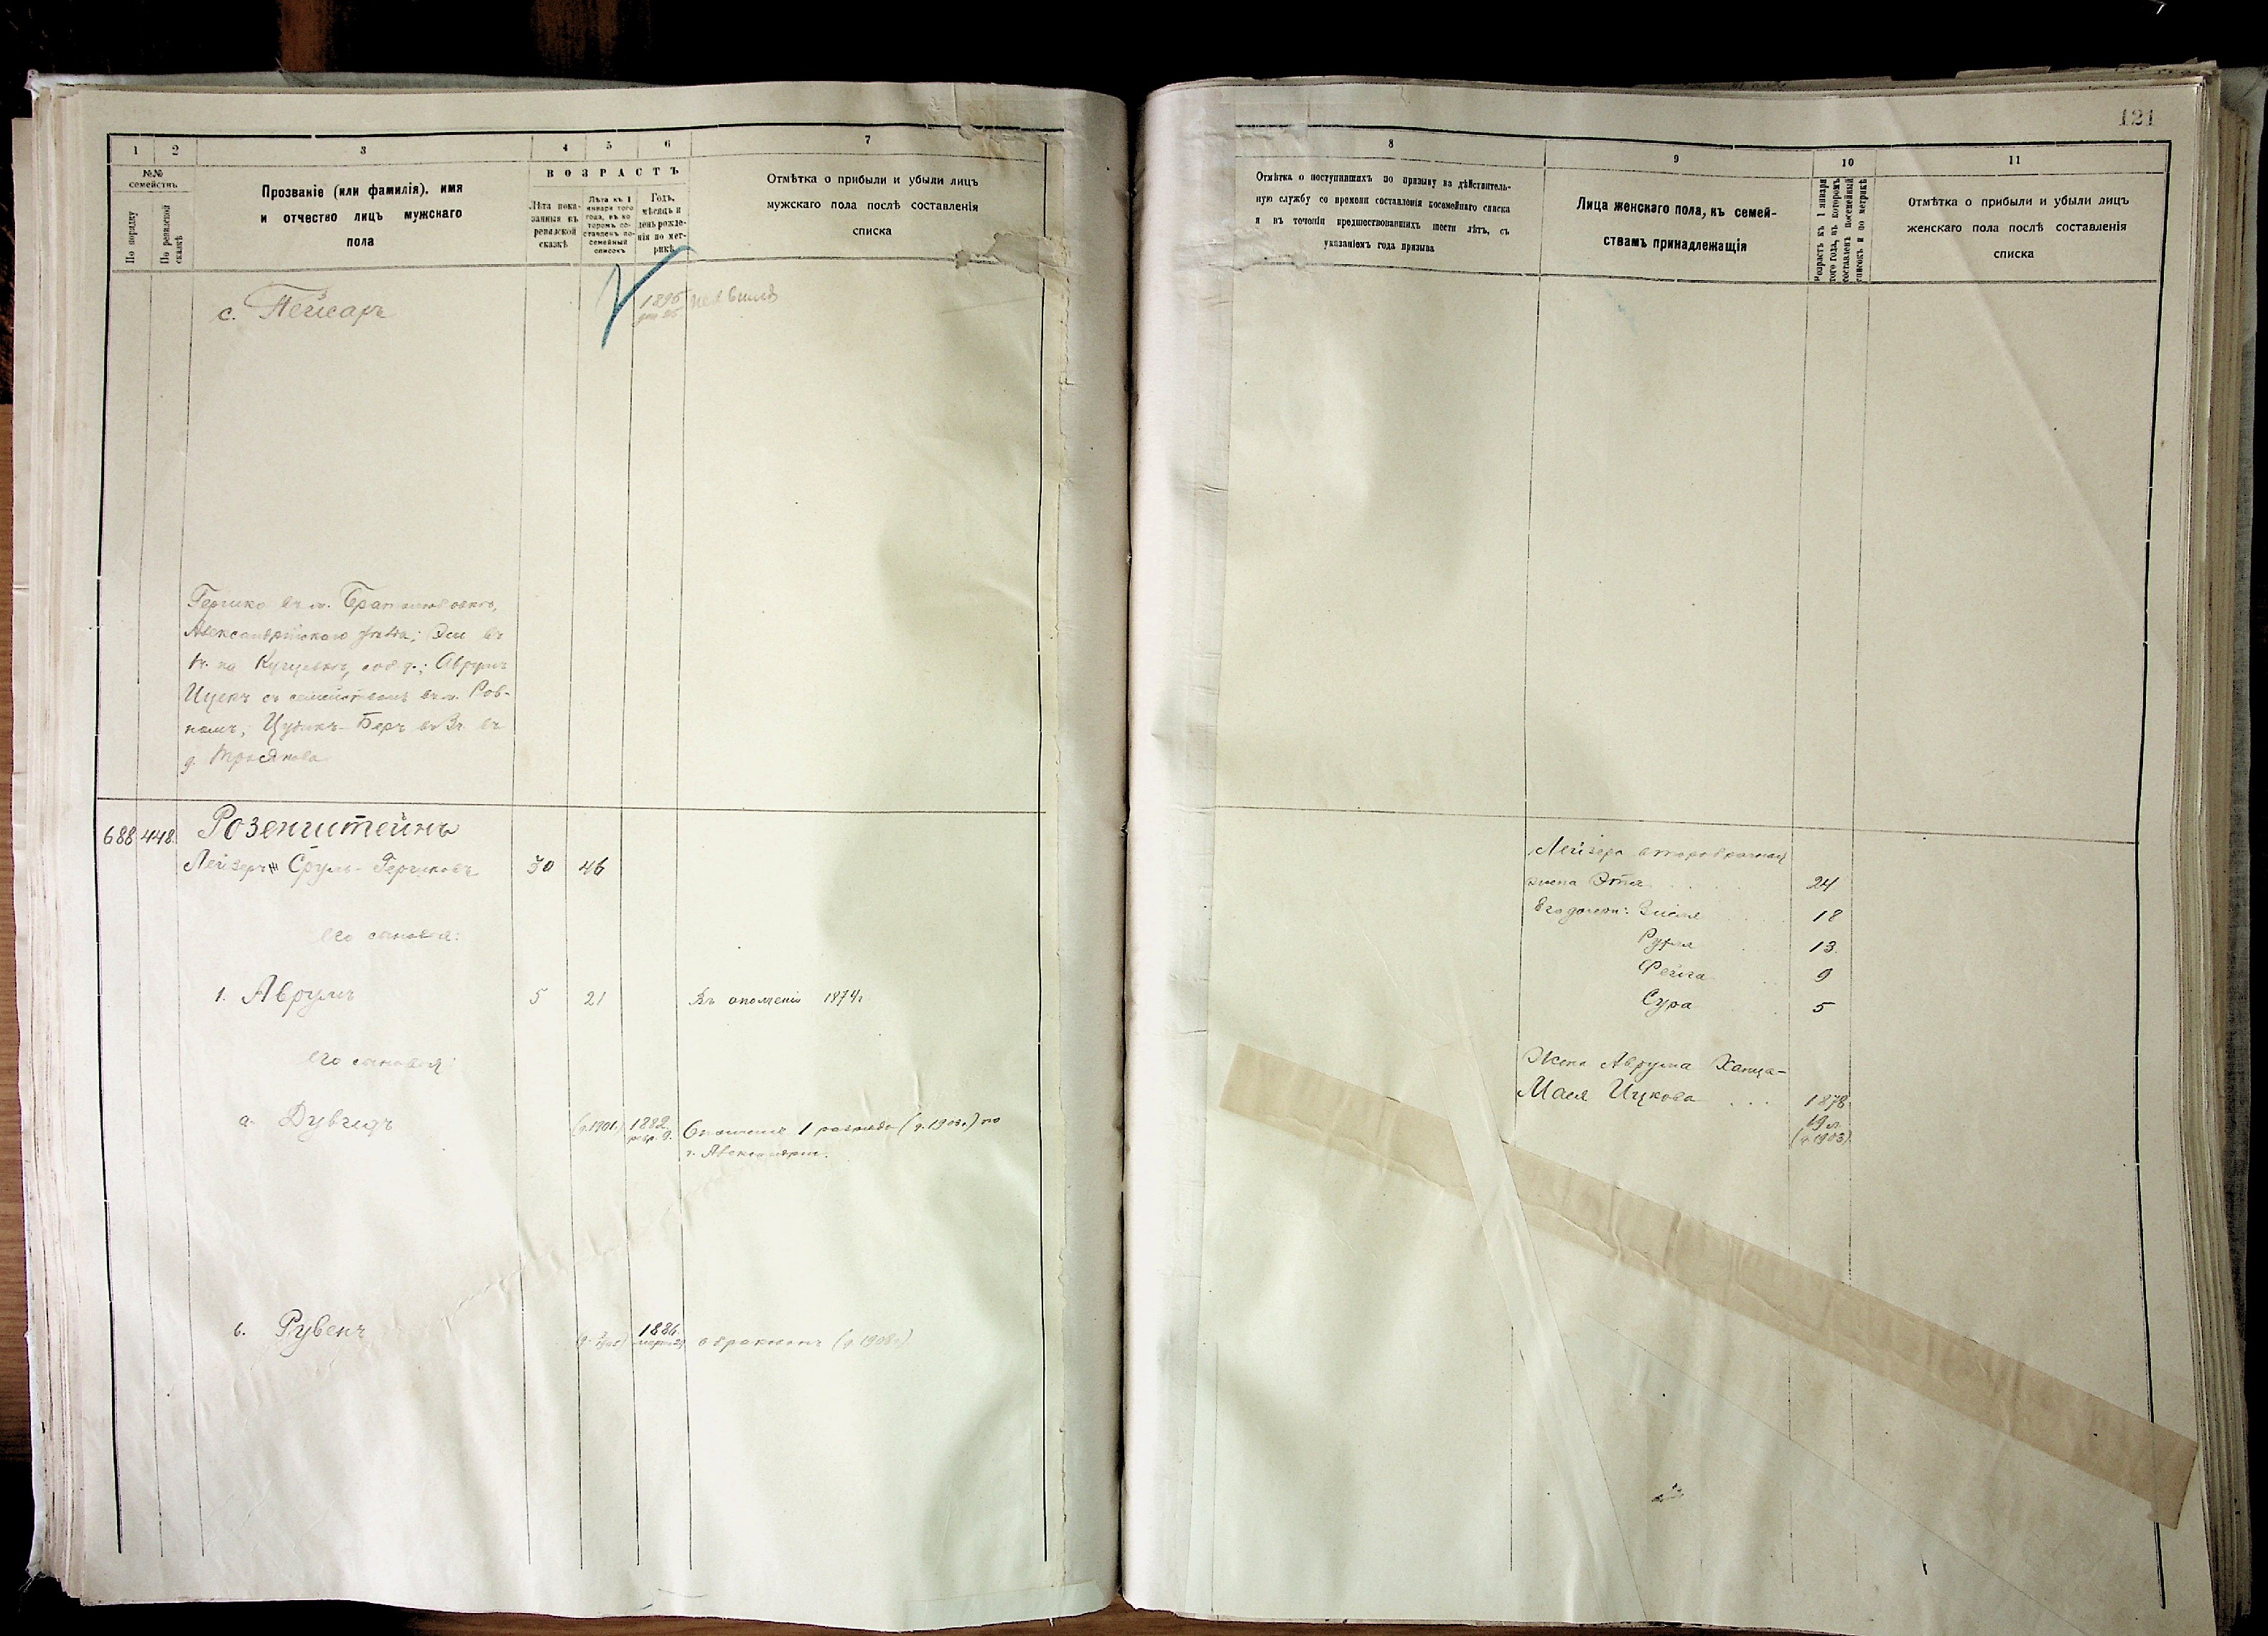 121
1
2
3
4
5
6
7
№№
семействъ
По порядку
По ревизской
сказкѣ
Прозваніе (или фамилія), имя
и отчество лицъ мужскаго
пола
ВОЗРАСТЪ
Лѣта пока-
занныя въ
ревизской
сказкѣ
Лѣта къ 1
января того
года, въ ко-
торомъ со-
ставленъ по-
семейный
списокъ
Годъ,
мѣсяцъ и
день рожде-
нія по мет-
рикѣ
Отмѣтка о прибыли и убыли лицъ
мужскаго пола послѣ составленія
списка
8
9
10
11
Отмѣтка о поступившихъ по призыву на дѣйствитель-
ную службу со времени составленія посемейнаго списка
и въ теченіи предшествовавшихъ шести лѣтъ, съ
указаніемъ года призыва
Лица женскаго пола, къ семей-
ствамъ принадлежащія
Возрастъ къ 1 января
того года, въ которомъ
составленъ посемейный
списокъ и по метрикѣ
Отмѣтка о прибыли и убыли лицъ
женскаго пола послѣ составленія
списка
с. Пейсаръ 1895
Гершко въ м.
Александрійскаго уѣзда;
на Аврумъ
Ицекъ съ семействомъ въ м. Ров-
номъ; Беръ въ
д.
688 448 Розенштейнъ
Лейзеръ Сруль-Гершковъ 30 46
его сыновья:
1. Аврумъ 5 21 Въ ополченіи 1874 г
его сыновья:
а. Дувидъ (г. 1901) 1882 Ополченіе 1 разряда (г. 1903 г.) по
г. Александріи.
в. Рувенъ 1886 (г. 1908 г.)
Лейзера второбрачная
жена Этя 24
Его дочери: Зисля 18
Рухля 13
Фейга 9
Сура 5
Жена Аврума Ханца-
Мася Ицкова 1878
19 л.
(г. 1903)